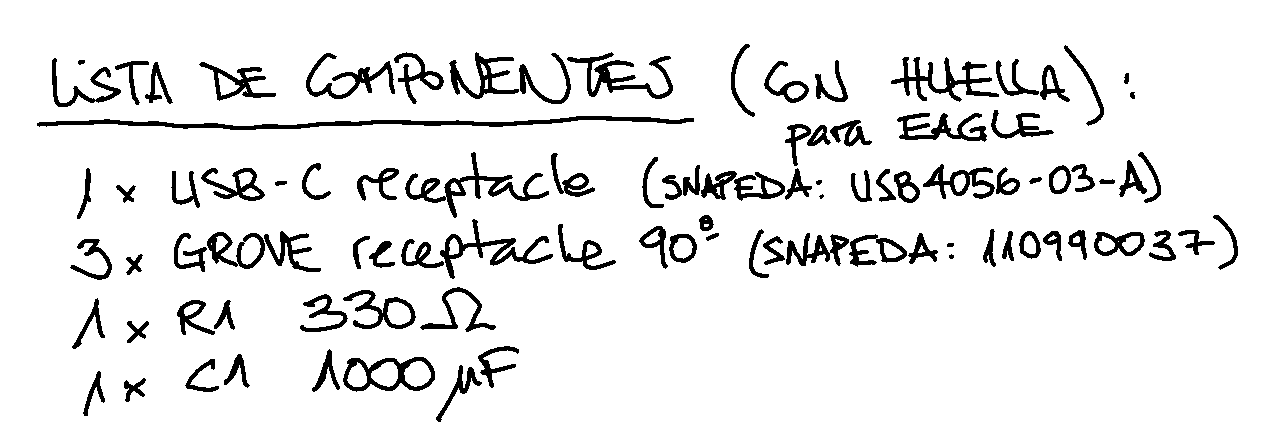 LISTA DE COMPONENTES (CON HUELLA):
para EAGLE
1 x USB-C receptacle (SNAPEDA: USB4056-03-A)
3 x GROVE receptacle 90º (SNAPEDA: 110990037)
1 x R1 330Ω
1 x C1 1000 µF